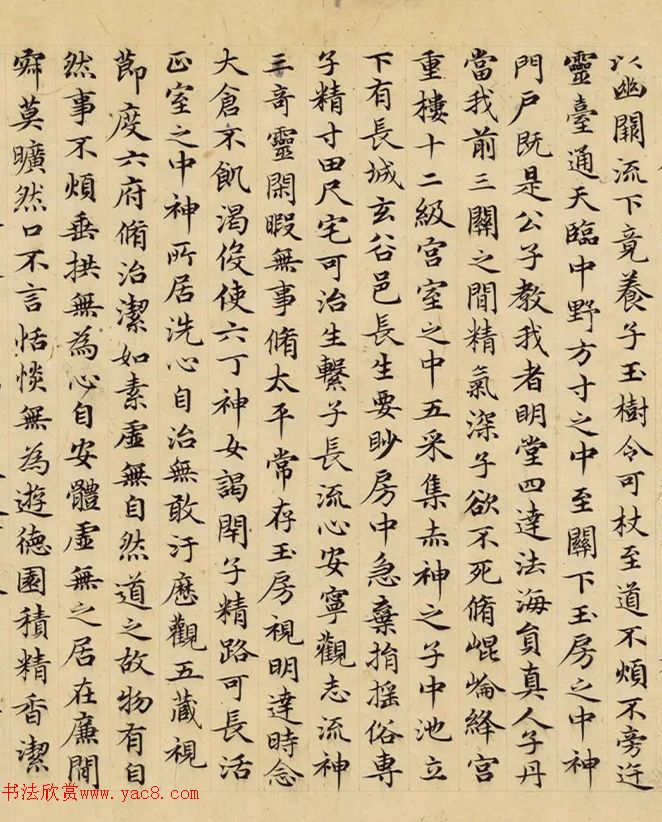 以幽關流下竟養子玉樹令可杖至道不煩不旁迕
靈臺通天臨中野方寸之中至關下玉房之中神
門戶既是公子教我者明堂四達法海員真人子丹
當我前三關之間精氣深子欲不死脩崐崘絳宮
重樓十二級宮室之中五采集赤神之子中池立
下有長城玄谷邑長生要眇房中急棄捐搖俗專
子精寸田尺宅可治生繫子長流心安寧觀志流神
三奇靈閑暇無事脩太平常存玉房視明達時念
大倉不飢渴伇使六丁神女謁閇子精路可長活
正室之中神所居洗心自治無敢汙歷觀五藏視
節度六府脩治潔如素虛無自然道之故物有自
然事不煩垂拱無為心自安體虛無之居在廉間
寂莫曠然口不言恬惔無為遊德園積精香潔
书法欣赏www.yac8.com